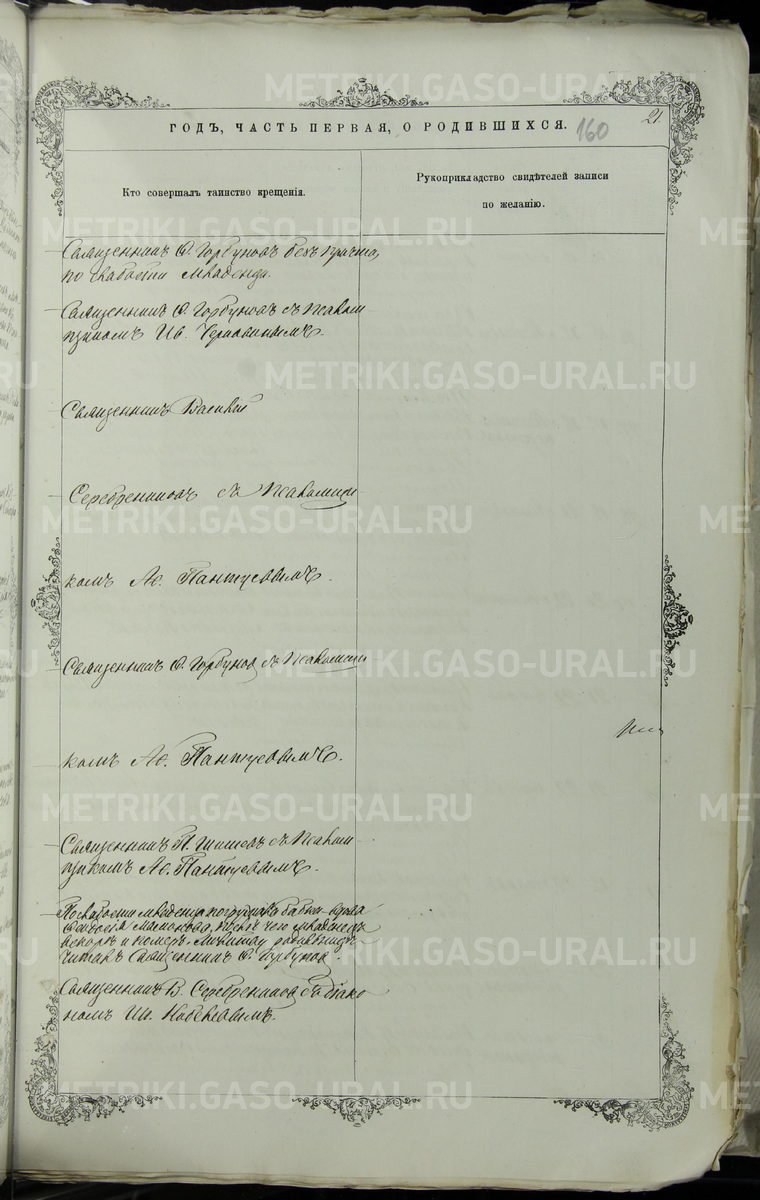 ГОДЪ, ЧАСТЬ ПЕРВАЯ, О РОДИВШИХСЯ.
160
21
Кто совершалъ таинство крещенія.
Рукоприкладство свидѣтелей записи
по желанію.
Священникъ Ѳ. Горбуновъ безъ причта,
по слабости младенца.
Священникъ Ѳ. Горбуновъ съ Псалом
щикомъ Ив.
Священникъ Василій
Серебренниковъ съ Псаломщи-
комъ Ав. Пантуевымъ.
Священникъ Ѳ. Горбуновъ съ Псаломщи
комъ Ав. Пантуевымъ.
Священникъ П. Шишевъ съ Псалом-
щикомъ Ав. Пантуевымъ.
По слабости младенца погружала бабка вдова
Мамонова, послѣ чего младенецъ
вскорѣ и померъ. Молитву родильницѣ
читалъ Священникъ Ѳ. Горбуновъ.
Священникъ В. Серебренниковъ съ Діако-
номъ Ин.
METRIKI.GASO-URAL.RU